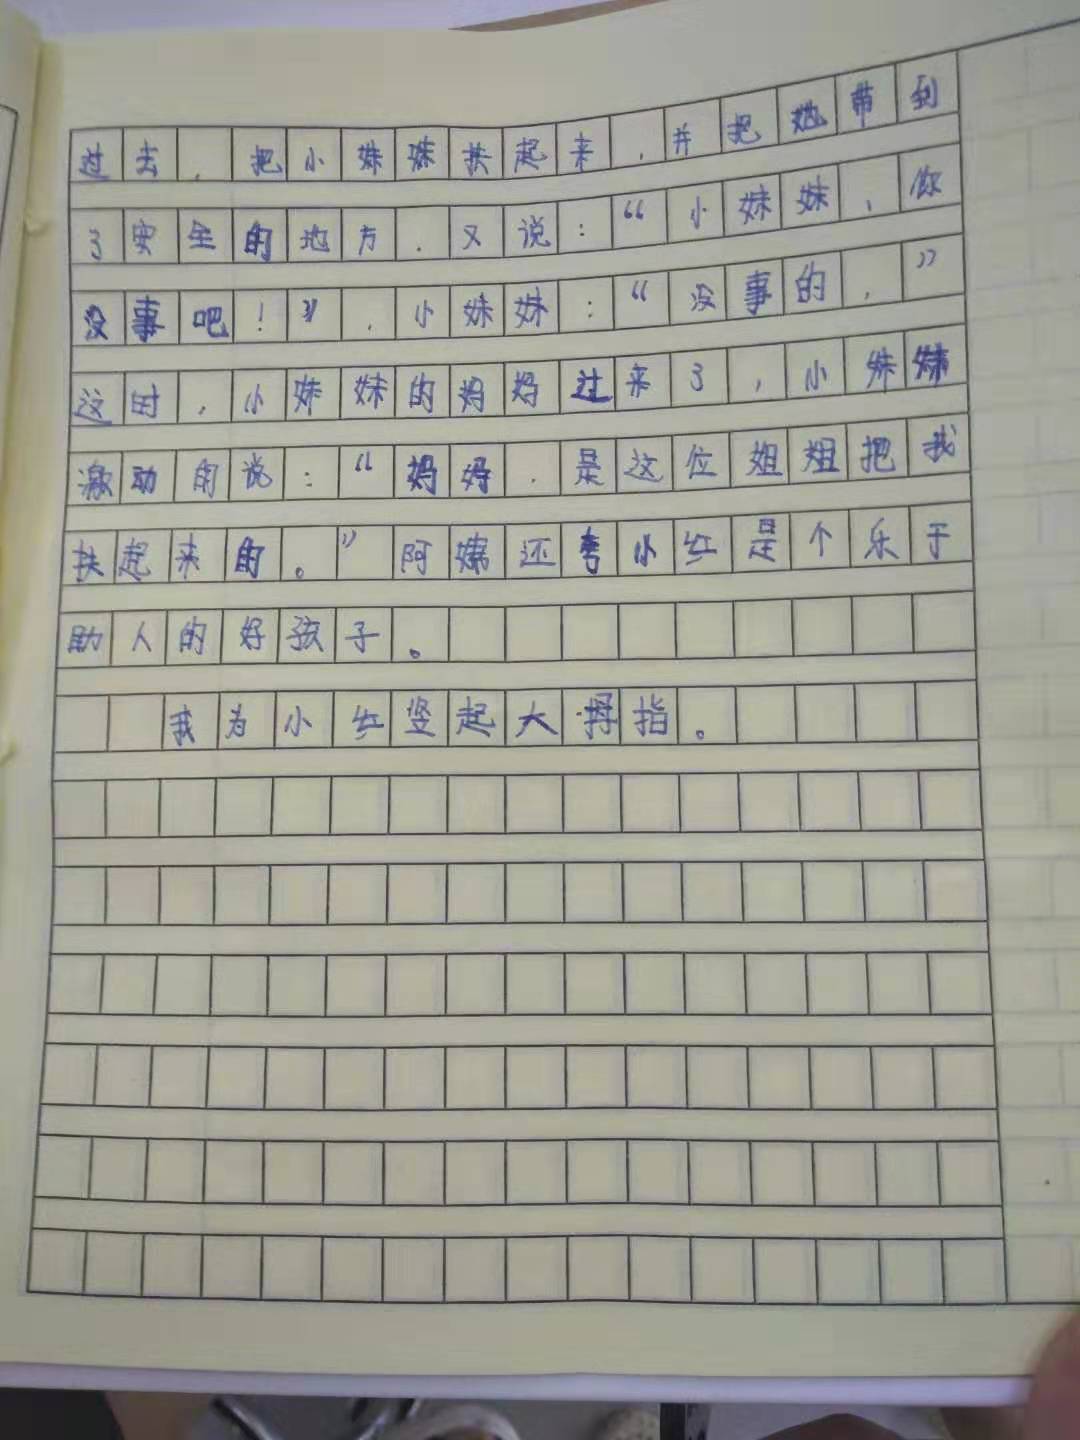 过去，把小妹妹扶起来，并把她带到
了安全的地方，又说：“小妹妹，你
没事吧！”，小妹妹：“没事的，”
这时，小妹妹的妈妈过来了，小妹妹
激动的说：“妈妈，是这位姐姐把我
扶起来的。”阿姨还夸小红是个乐于
助人的好孩子。
我为小红竖起大拇指。